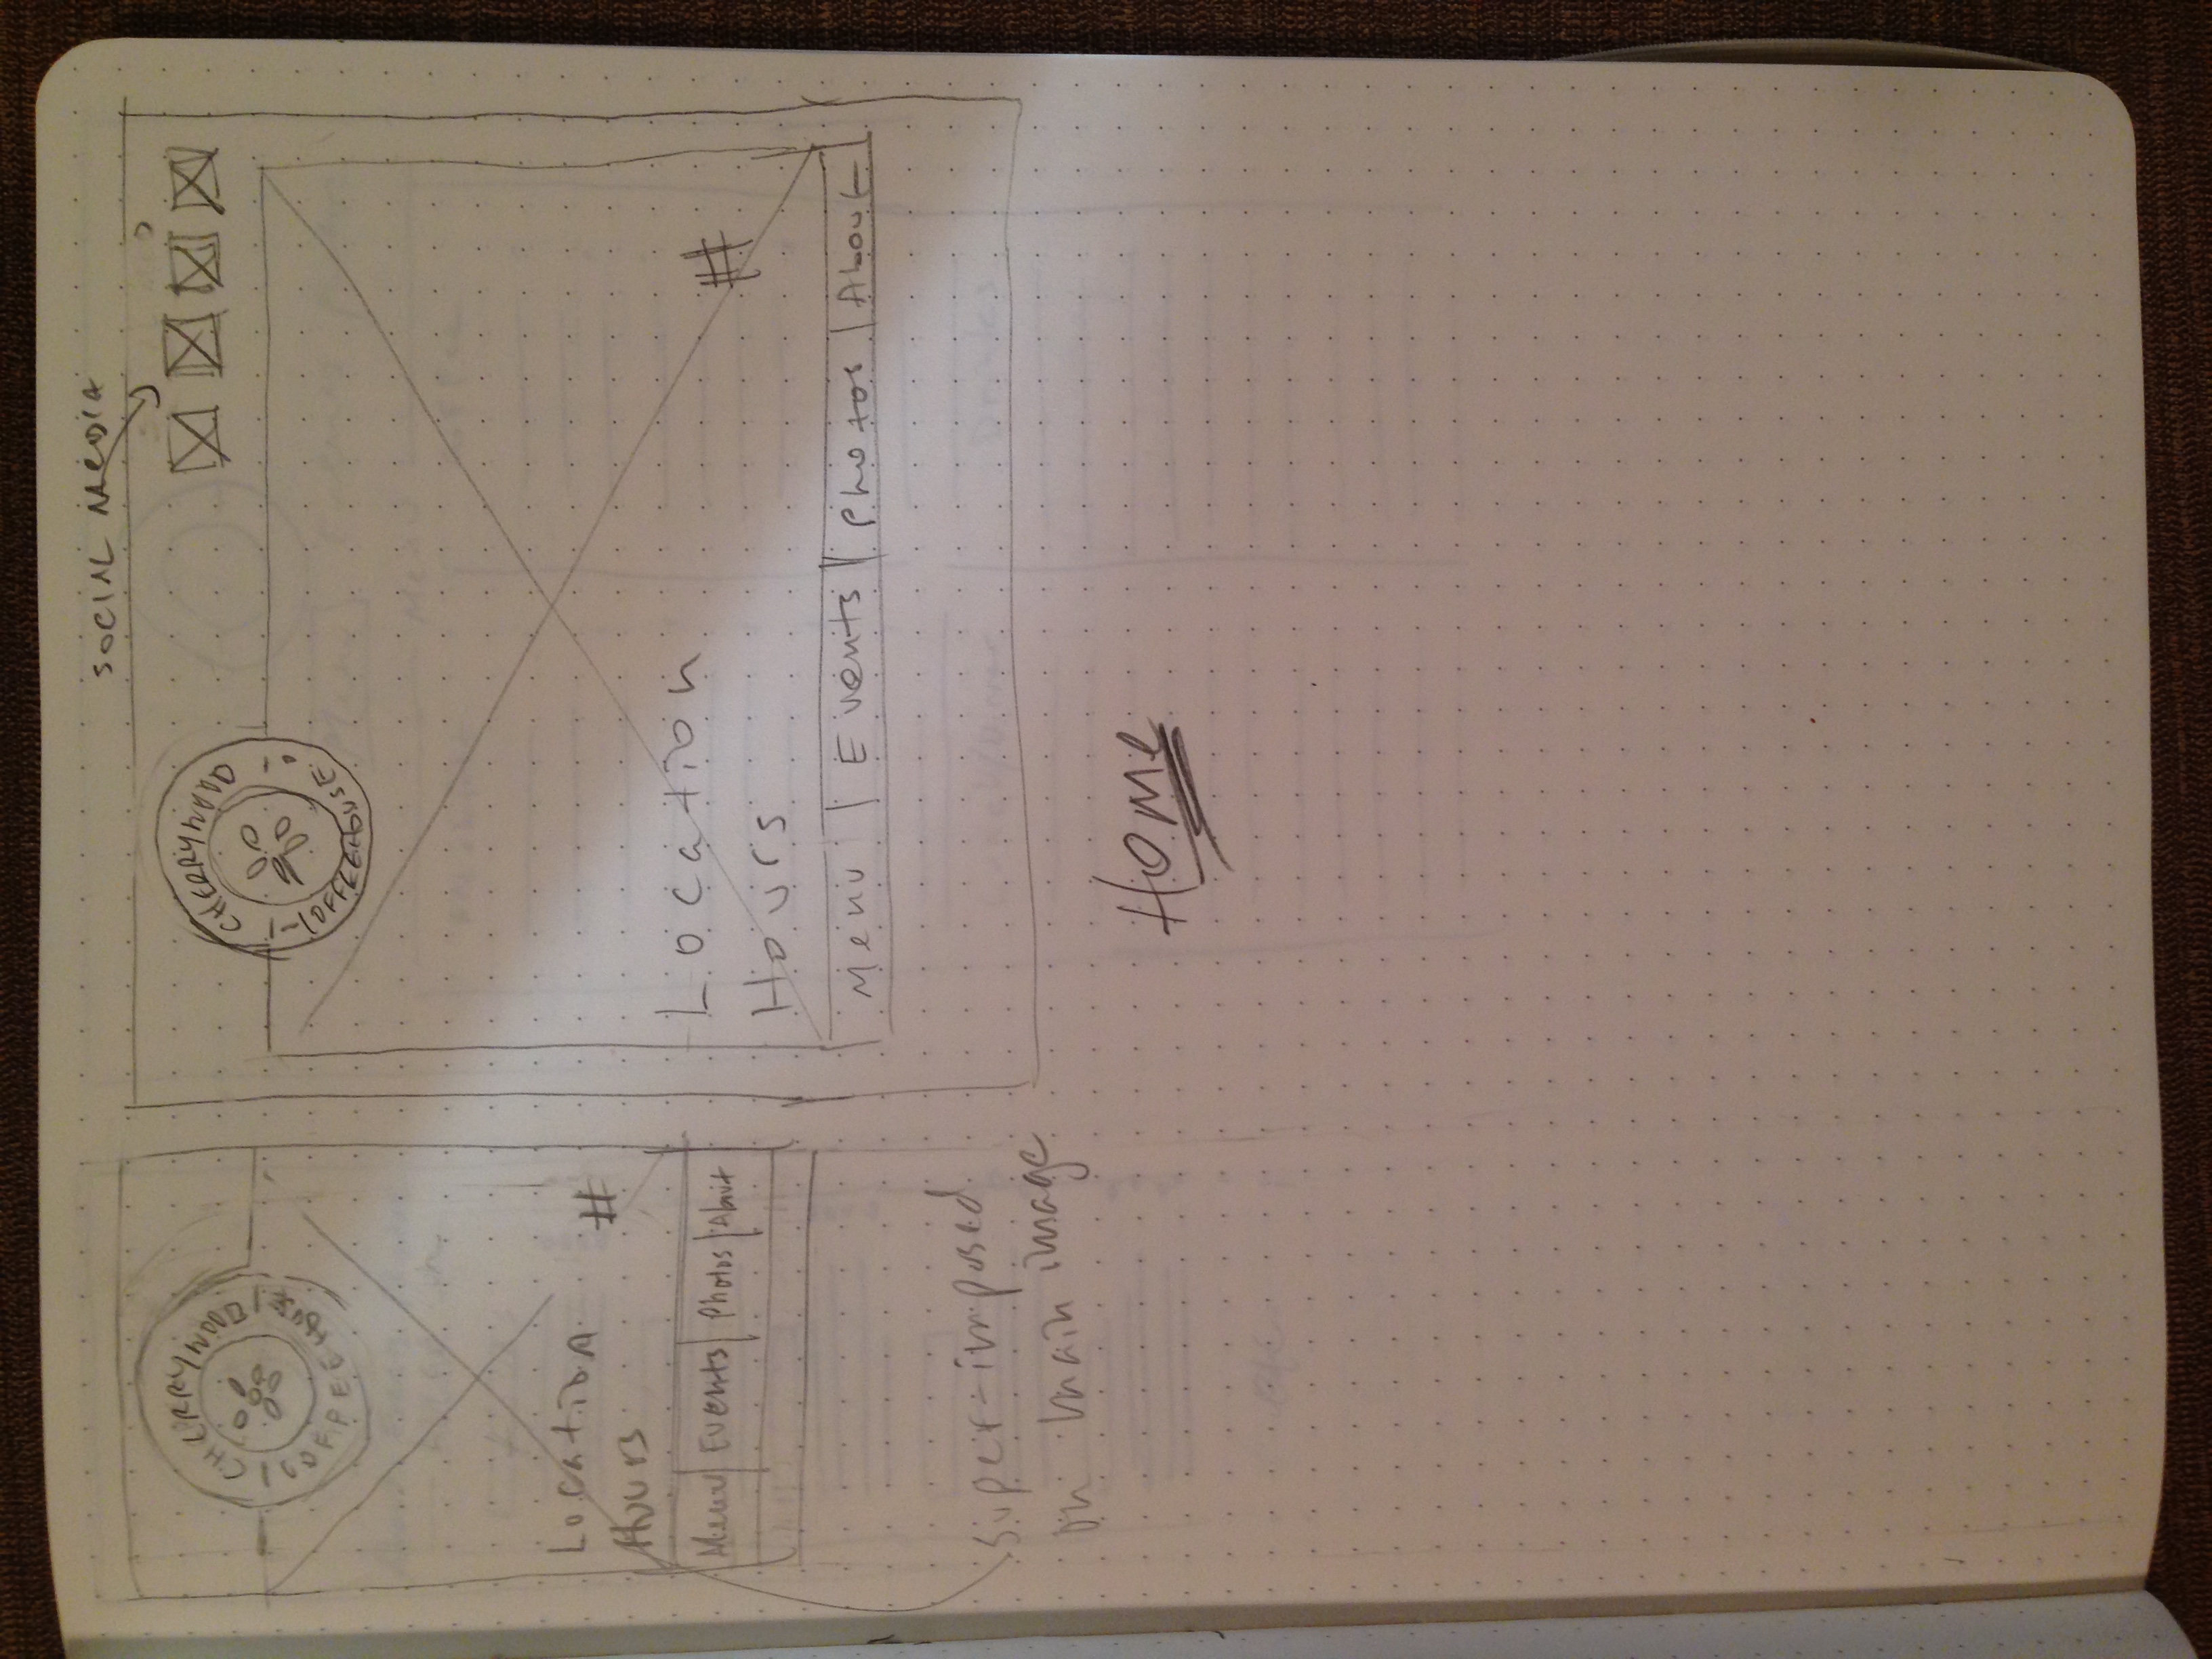 SOCIAL MEDIA
CHERRYWOOD
COFFEEHOUSE
Location
#
Hours
Menu Events Photos About
Super-imposed
on main image
CHERRYWOOD
COFFEEHOUSE
Location
#
Hours
Menu Events Photos About
Home